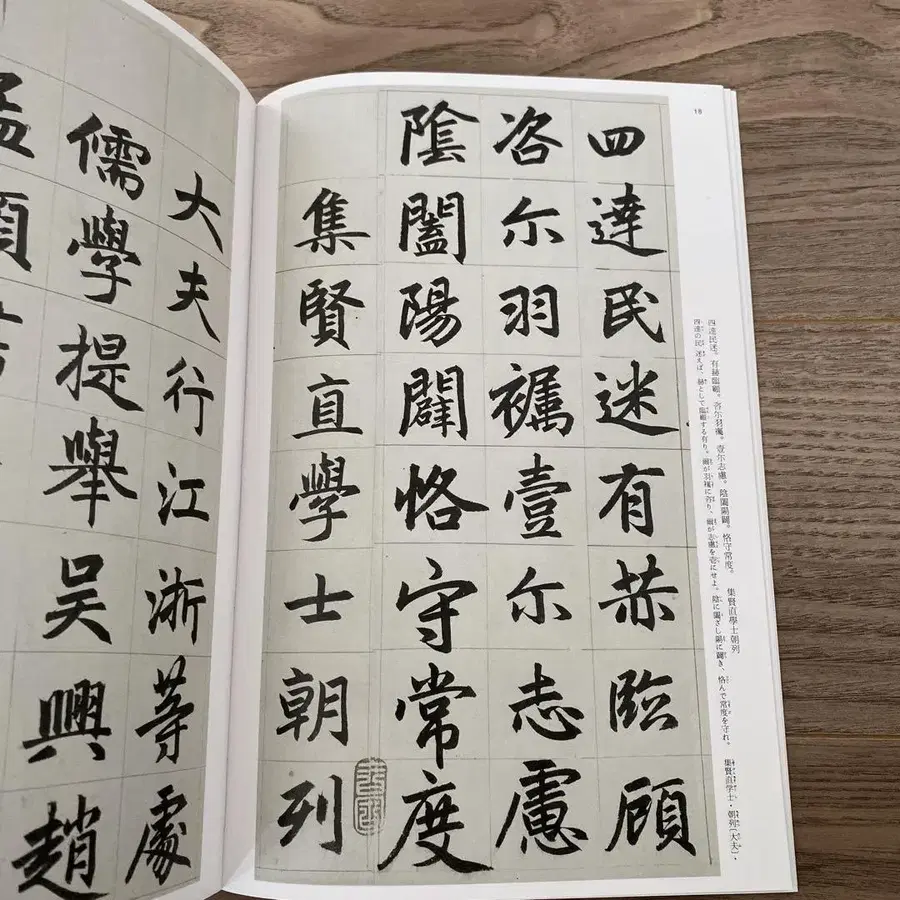 18
四達民迷。有赫臨顧。咨尓羽襹。壹尓志慮。陰闔陽闢。恪守常度。 集賢直學士朝列
四達の民 迷えば、赫として臨顧する有り。爾が羽襹に咨り、爾が志慮を壱にせよ。陰に闔ざし陽に闢き、恪んで常度を守れ。 集賢直学士・朝列(大夫)、
四達民迷有赫臨顧
咨尓羽襹壹尓志慮
陰闔陽闢恪守常度
集賢直學士朝列
大夫行江淅等處
儒學提舉吳興趙
孟頫